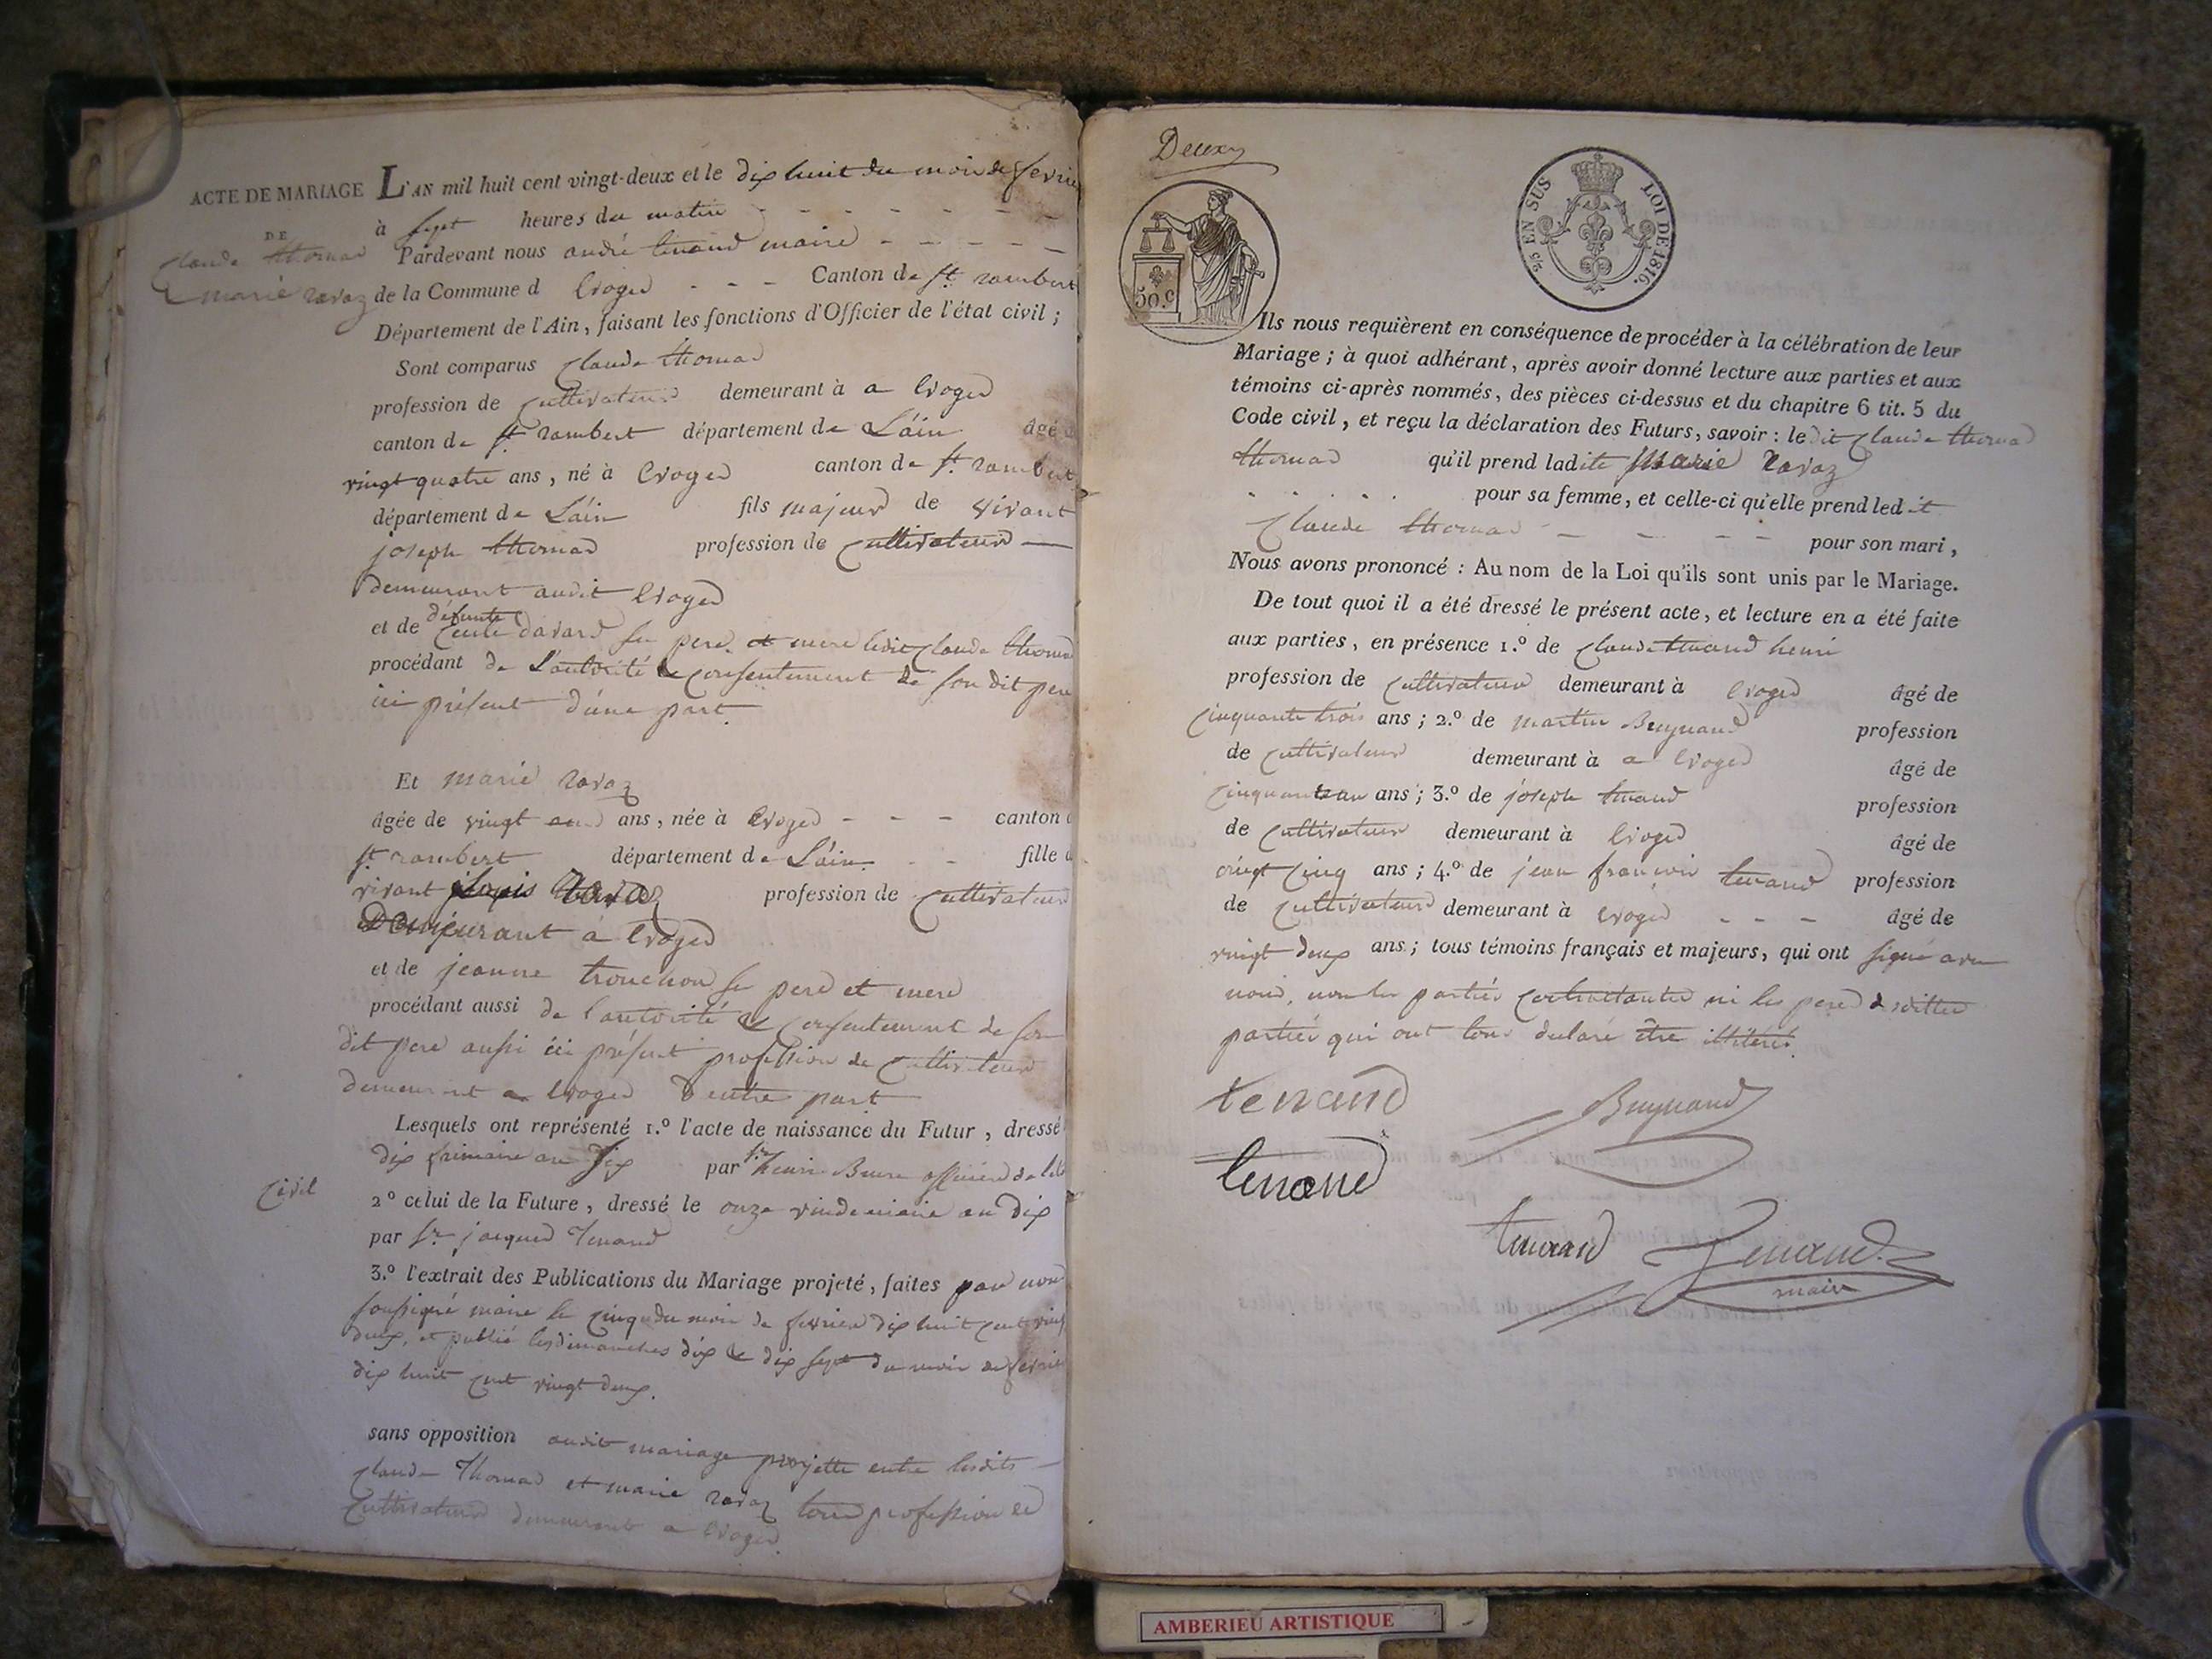 ACTE DE MARIAGE
DE
Claude thomas
& marie ravaz
L'AN mil huit cent vingt-deux et le dix huit du mois de fevrier
à sept heures du matin
Pardevant nous andré tenand maire
de la Commune d Evoges Canton de St. rambert
Département de l'Ain, faisant les fonctions d'Officier de l'état civil ;
Sont comparus Claude thomas
profession de Cultivateur demeurant à a Evoges
canton de St. rambert département de L'ain âgé d
vingt quatre ans, né à Evoges canton de St. rambert
département de L'ain fils majeur de vivant
joseph thomas profession de Cultivateur
demeurant audit Evoges
défunte
et de davard se pere et mere ledit Claude thomas
procédant de L'autorité & Consentement de son dit pere
ici présent d'une part.
Et marie ravaz
âgée de vingt ans, née à Evoges canton d
St. rambert département de L'ain fille d
vivant Ravaz profession de Cultivateur
Demeurant à Evoges
et de jeanne trouchon se pere et mere
procédant aussi de l'autorité & Consentement de son
dit pere aussi ici présent profession de Cultivateur
demeurant a Evoges D'autre part
Lesquels ont représenté 1.º l'acte de naissance du Futur, dressé
dix frimaire an Six par Sr. henri officier de l'état
Civil
2º celui de la Future, dressé le onze vindemiaire an Dix
par Sr. jacques Tenand
3.º l'extrait des Publications du Mariage projeté, faites par nous
soussigné maire le Cinq du mois de fevrier dix huit Cent vingt
deux, et publié les dimanches dix & dix sept du mois de fevrier
dix huit Cent vingt deux.
sans opposition audit mariage projetté entre lesdits
Claude Thomas et marie ravaz tous profession de
Cultivateur demeurant a Evoges.
Deux
50.c
5/2 EN SUS LOI DE 1816.
Ils nous requièrent en conséquence de procéder à la célébration de leur
Mariage ; à quoi adhérant, après avoir donné lecture aux parties et aux
témoins ci-après nommés, des pièces ci-dessus et du chapitre 6 tit. 5 du
Code civil, et reçu la déclaration des Futurs, savoir : le dit Claude thomas
thomas qu'il prend ladite Marie Ravaz
pour sa femme, et celle-ci qu'elle prend ledit
Claude thomas pour son mari,
Nous avons prononcé : Au nom de la Loi qu'ils sont unis par le Mariage.
De tout quoi il a été dressé le présent acte, et lecture en a été faite
aux parties, en présence 1.º de Claude tenand henri
profession de Cultivateur demeurant à Evoges âgé de
Cinquante trois ans ; 2.º de martin Buynand profession
de Cultivateur demeurant à a Evoges âgé de
Cinquante un ans ; 3.º de joseph tenand profession
de Cultivateur demeurant à Evoges âgé de
vingt Cinq ans ; 4.º de jean françois tenand profession
de Cultivateur demeurant à Evoges âgé de
vingt deux ans ; tous témoins français et majeurs, qui ont signé avec
nous, non les parties Contractantes ni les peres desdittes
parties qui ont tous declaré être illitérés.
tenand Buynand
tenand
tenand Tenand
maire
AMBERIEU ARTISTIQUE